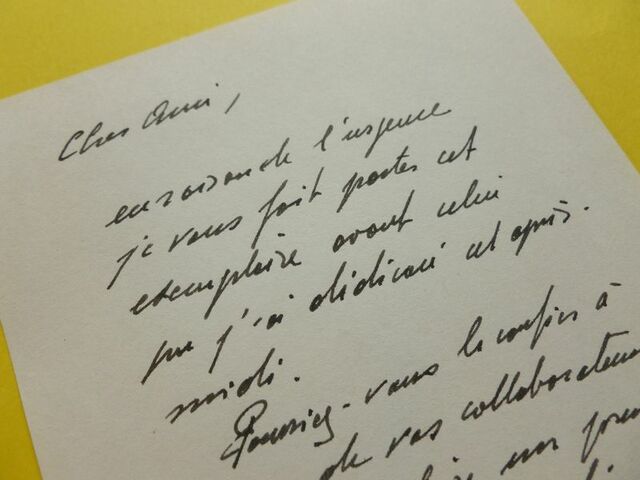 Cher Ami,
en raison de l'urgence
je vous fait porter cet
exemplaire avant celui
que j'ai dédicacé cet après.
midi.
Pourriez-vous le confier à
de vos collaborateurs